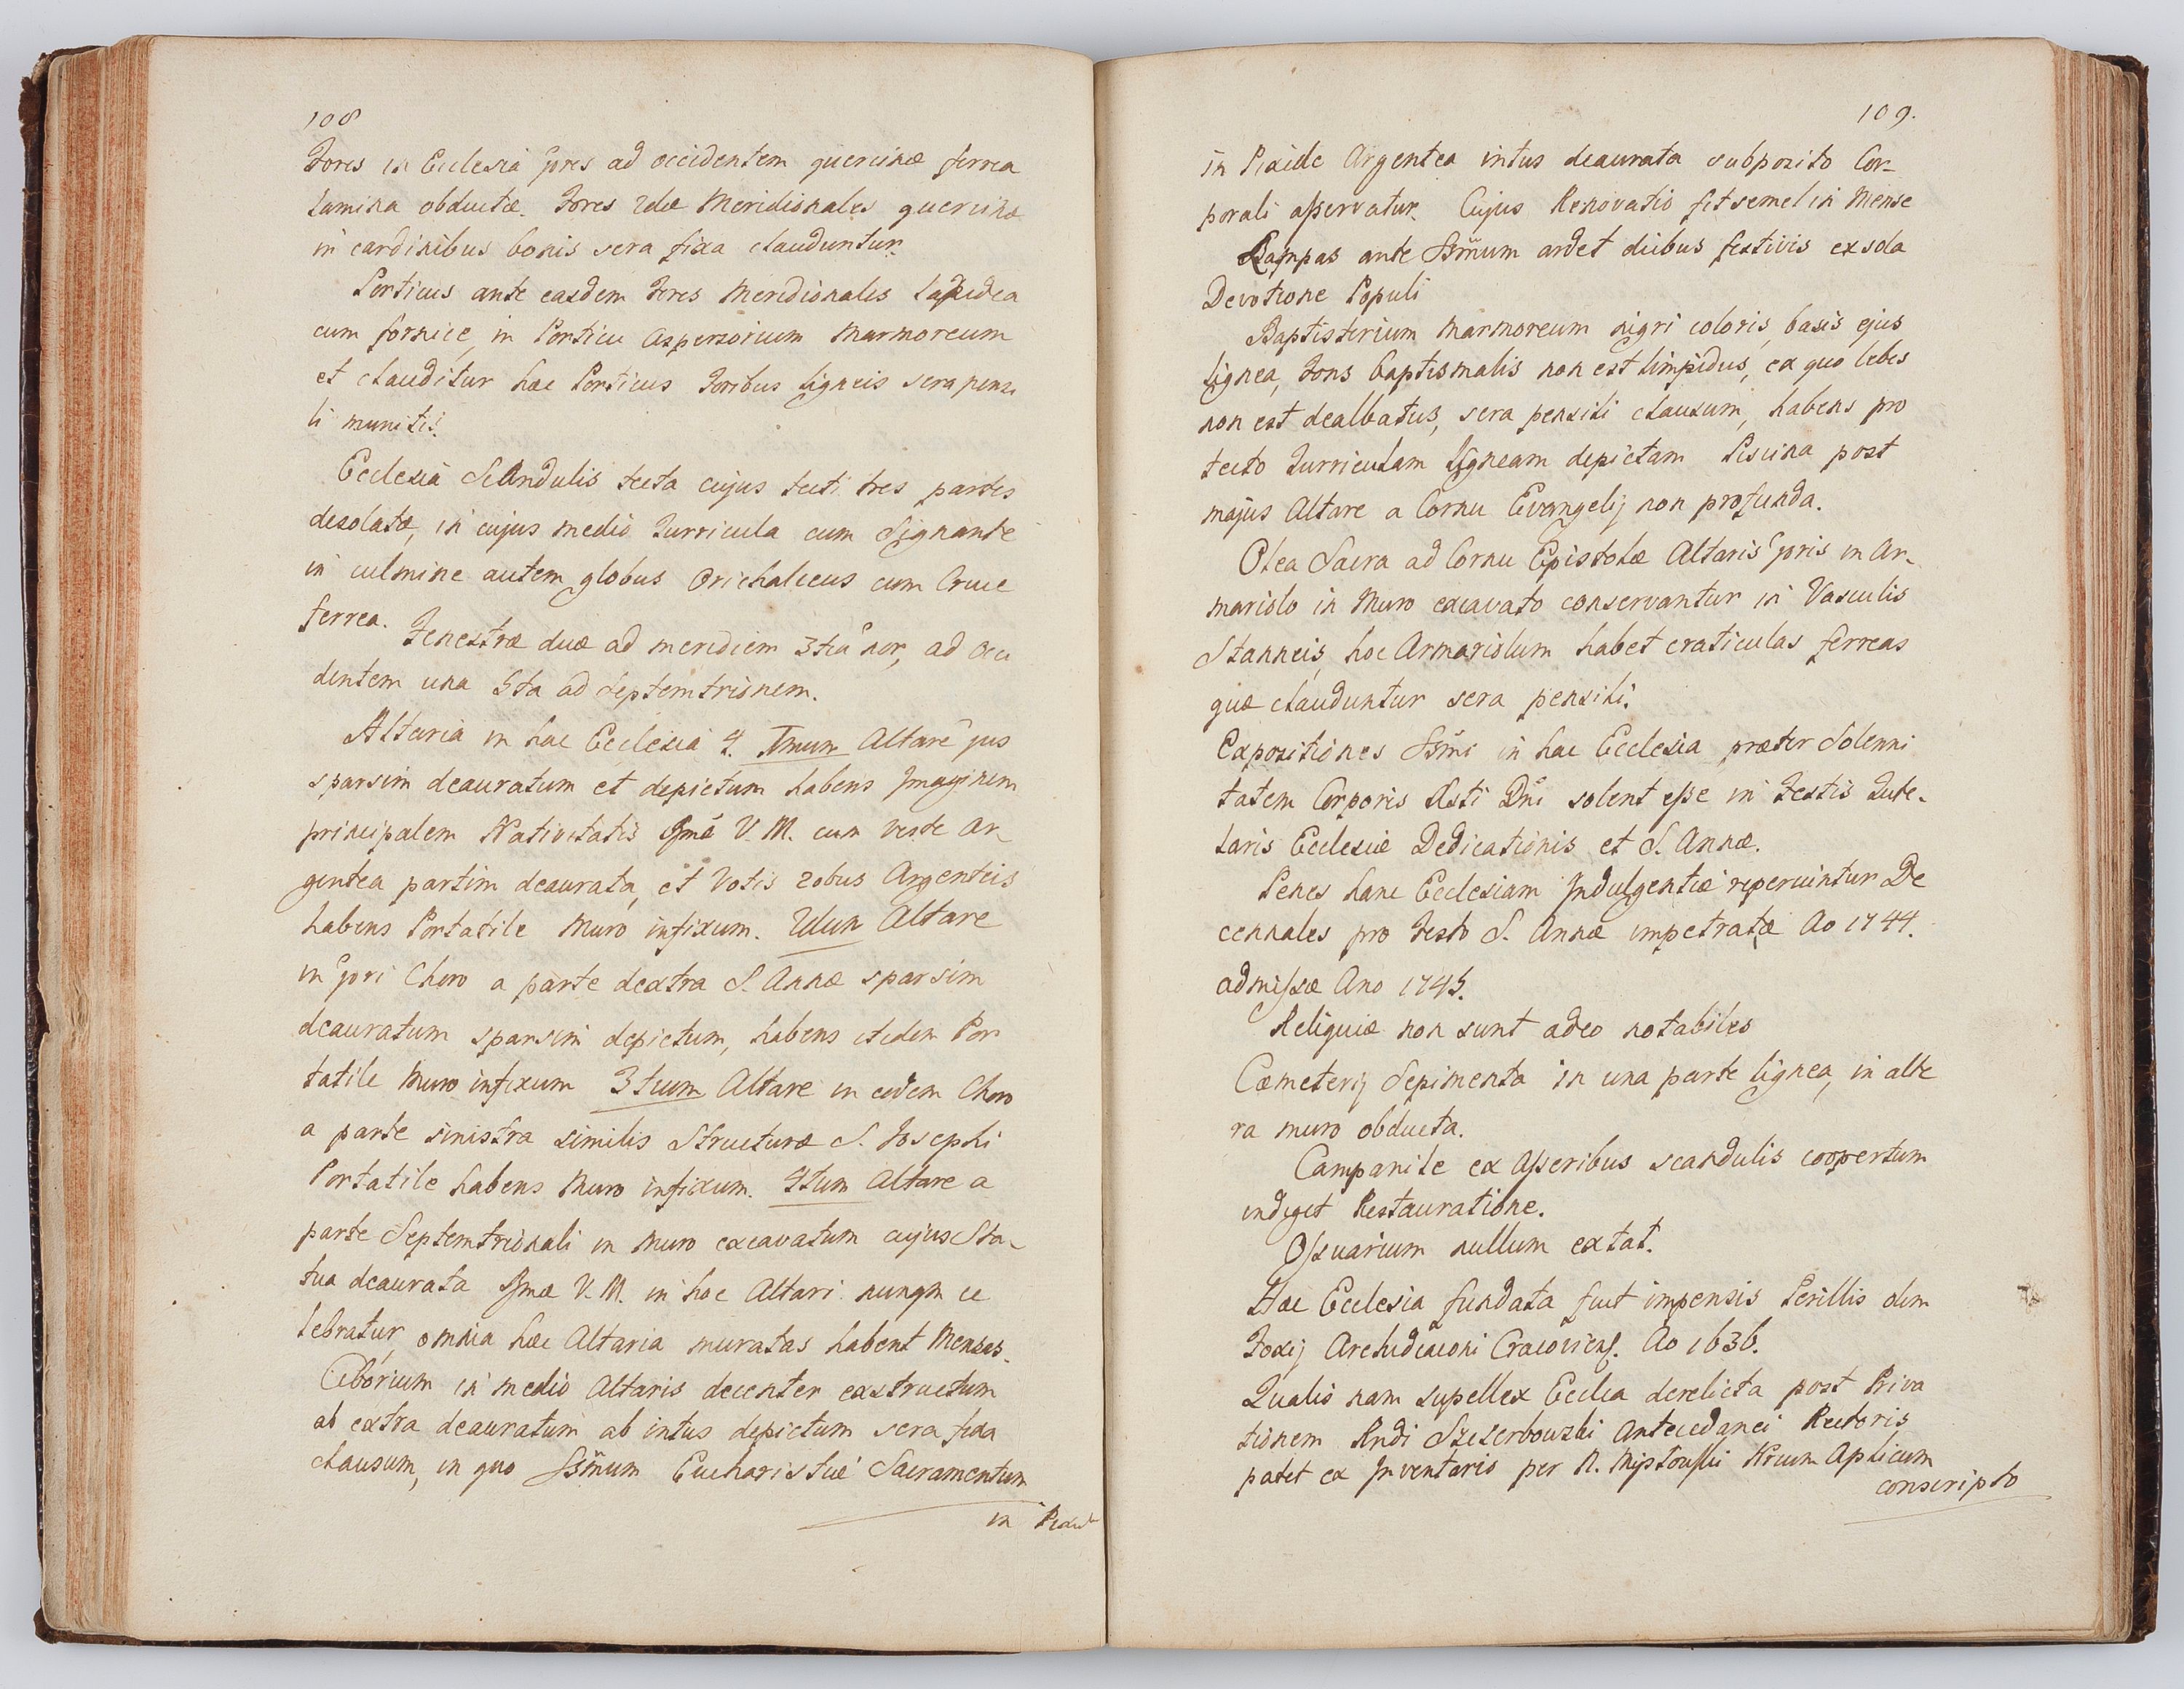 108
Fores in Ecclesia pres ad occidentem quercinæ ferrea
Lamina obductæ. Fores 2dæ Meridionales quercinæ
in cardinibus bonis sera fixa clauduntur.
Porticus ante easdem Fores Meridionales Lapidea
cum fornice, in Porticu Aspersorium Marmoreum
et clauditur hæc Porticus Foribus ligneis sera pensi
li munitis.
Ecclesia Scandulis tecta cujus tecti tres partes
desolatæ, in cujus medio Turricula cum Signante
in culmine autem globus Orichalceus cum Cruce
ferrea.
Fenestræ duæ ad meridiem 3tia nor, ad Occi
dentem una 5ta ad Septemtrionem.
Altaria in hac Ecclesia 4. Imum Altare jus
sparsim deauratum et depictum habens Imaginem
principalem Nativitatis Ssmæ V. M. cum veste Ar
gentea partim deaurata, et Votis 20bus Argenteis
habens Portatile Muro infixum. 2dum Altare
in pori Choro a parte dextra S. Annæ sparsim
deauratum sparsim depictum, habens itidem Por
tatile Muro infixum 3tium Altare in eodem Choro
a parte sinistra similis Structuræ S. Josephi
Portatile habens Muro infixum. 4tum Altare a
parte Septemtrionali in Muro excavatum cujus Sta-
tua deaurata Ssmæ V. M. in hoc Altari nunqm ce
lebratur, omnia hæc Altaria muratas habent Mensas.
Ciborium in medio Altaris decenter exstructum
ab extra deauratum ab intus depictum sera fixa
clausum, in quo Ssmum Eucharistiæ Sacramentum
in Pixid
109.
in Pixide Argentea intus deaurata subposito Cor-
porali asservatur. Cujus Renovatio fit semel in Mense
Lampas ante Ssmum ardet diebus festivis ex sola
Devotione Populi
Baptisterium Marmoreum nigri coloris, basis ejus
lignea, Fons baptismalis non est limpidus, ex quo lebes
non est dealbatus, sera pensili clausum, habens pro
tecto Turriculam ligneam depictam Piscina post
majus Altare a Cornu Evangelij non profunda.
Olea Sacra ad Cornu Epistolæ Altaris pris in Ar-
mariolo in Muro excavato conservantur in Vasculis
Stanneis, hoc Armariolum habet craticulas ferreas
quæ clauduntur sera pensili.
Expositiones Ssmi in hac Ecclesia præter Solenni
tatem Corporis Xsti Dni solent esse in Festis Tute-
laris Ecclesiæ Dedicationis et S. Annæ.
Penes hanc Ecclesiam Indulgentiæ reperiuntur De
cennales pro Festo S. Annæ impetratæ Ao 1744.
admissæ Ano 1745.
Reliquiæ non sunt adeo notabiles
Cæmeterij Sepimenta in una parte lignea, in alte
ra muro obducta.
Campanile ex Asseribus scandulis coopertum
indiget Restauratione.
Ossuarium nullum extat.
Hæc Ecclesia fundata fuit impensis Perillis olim
Foxij Archidiaconi Cracoviens. Ao 1636.
Qualis nam supellex Ecclea derelicta post Priva
tionem Rndi Szczerbowski Antecedanei Rectoris
patet ex Inventario per R. Nrium Aplicum
conscripto